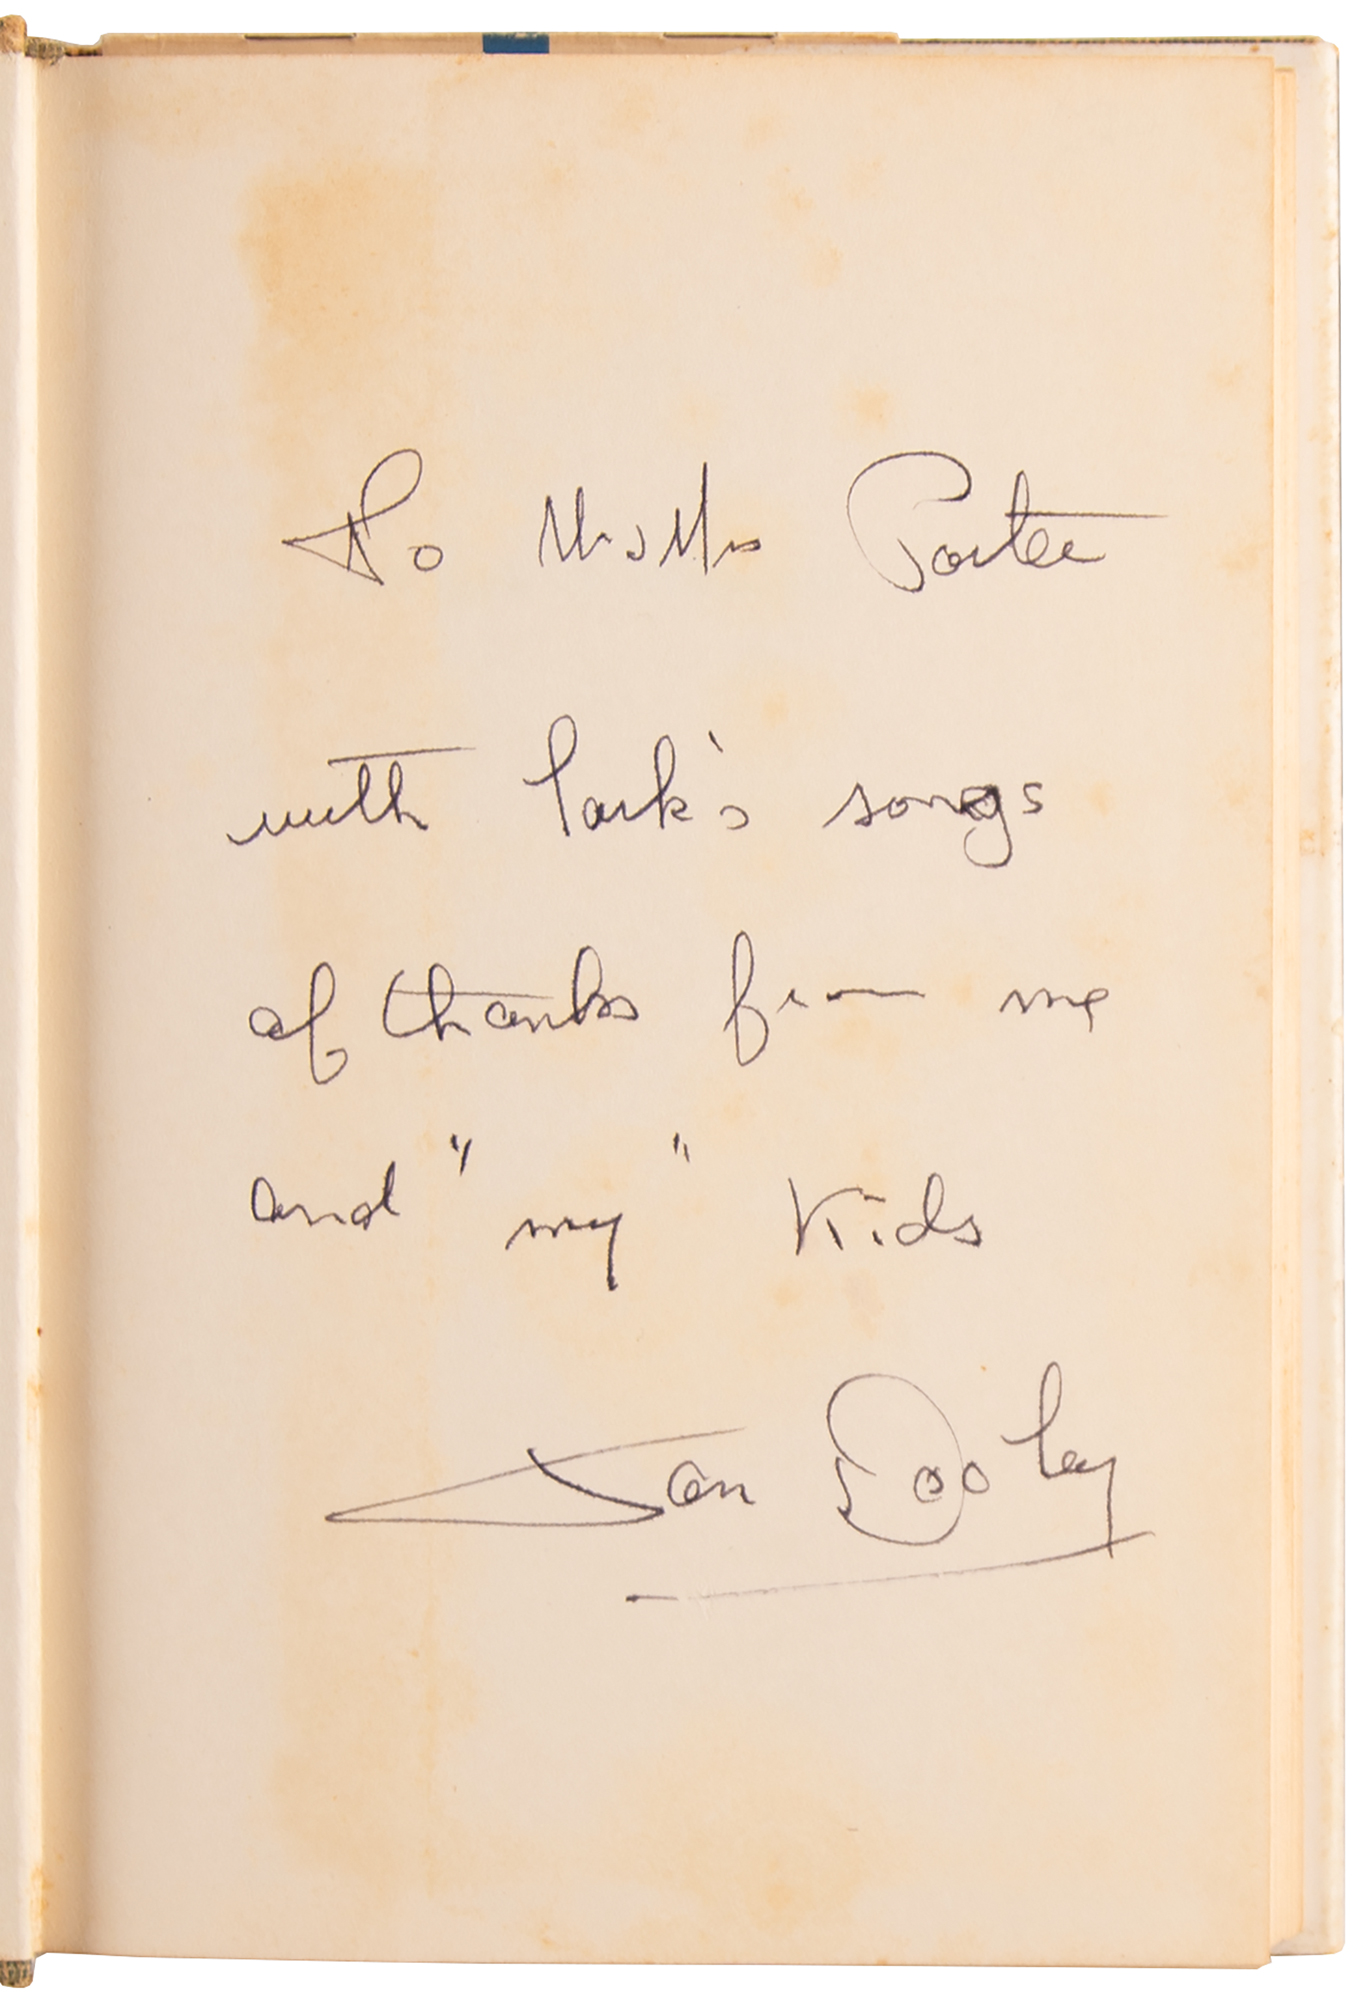 To Mr & Mrs Porter
with lark's songs
of thanks from me
and "my" Kids
Tom Dooley